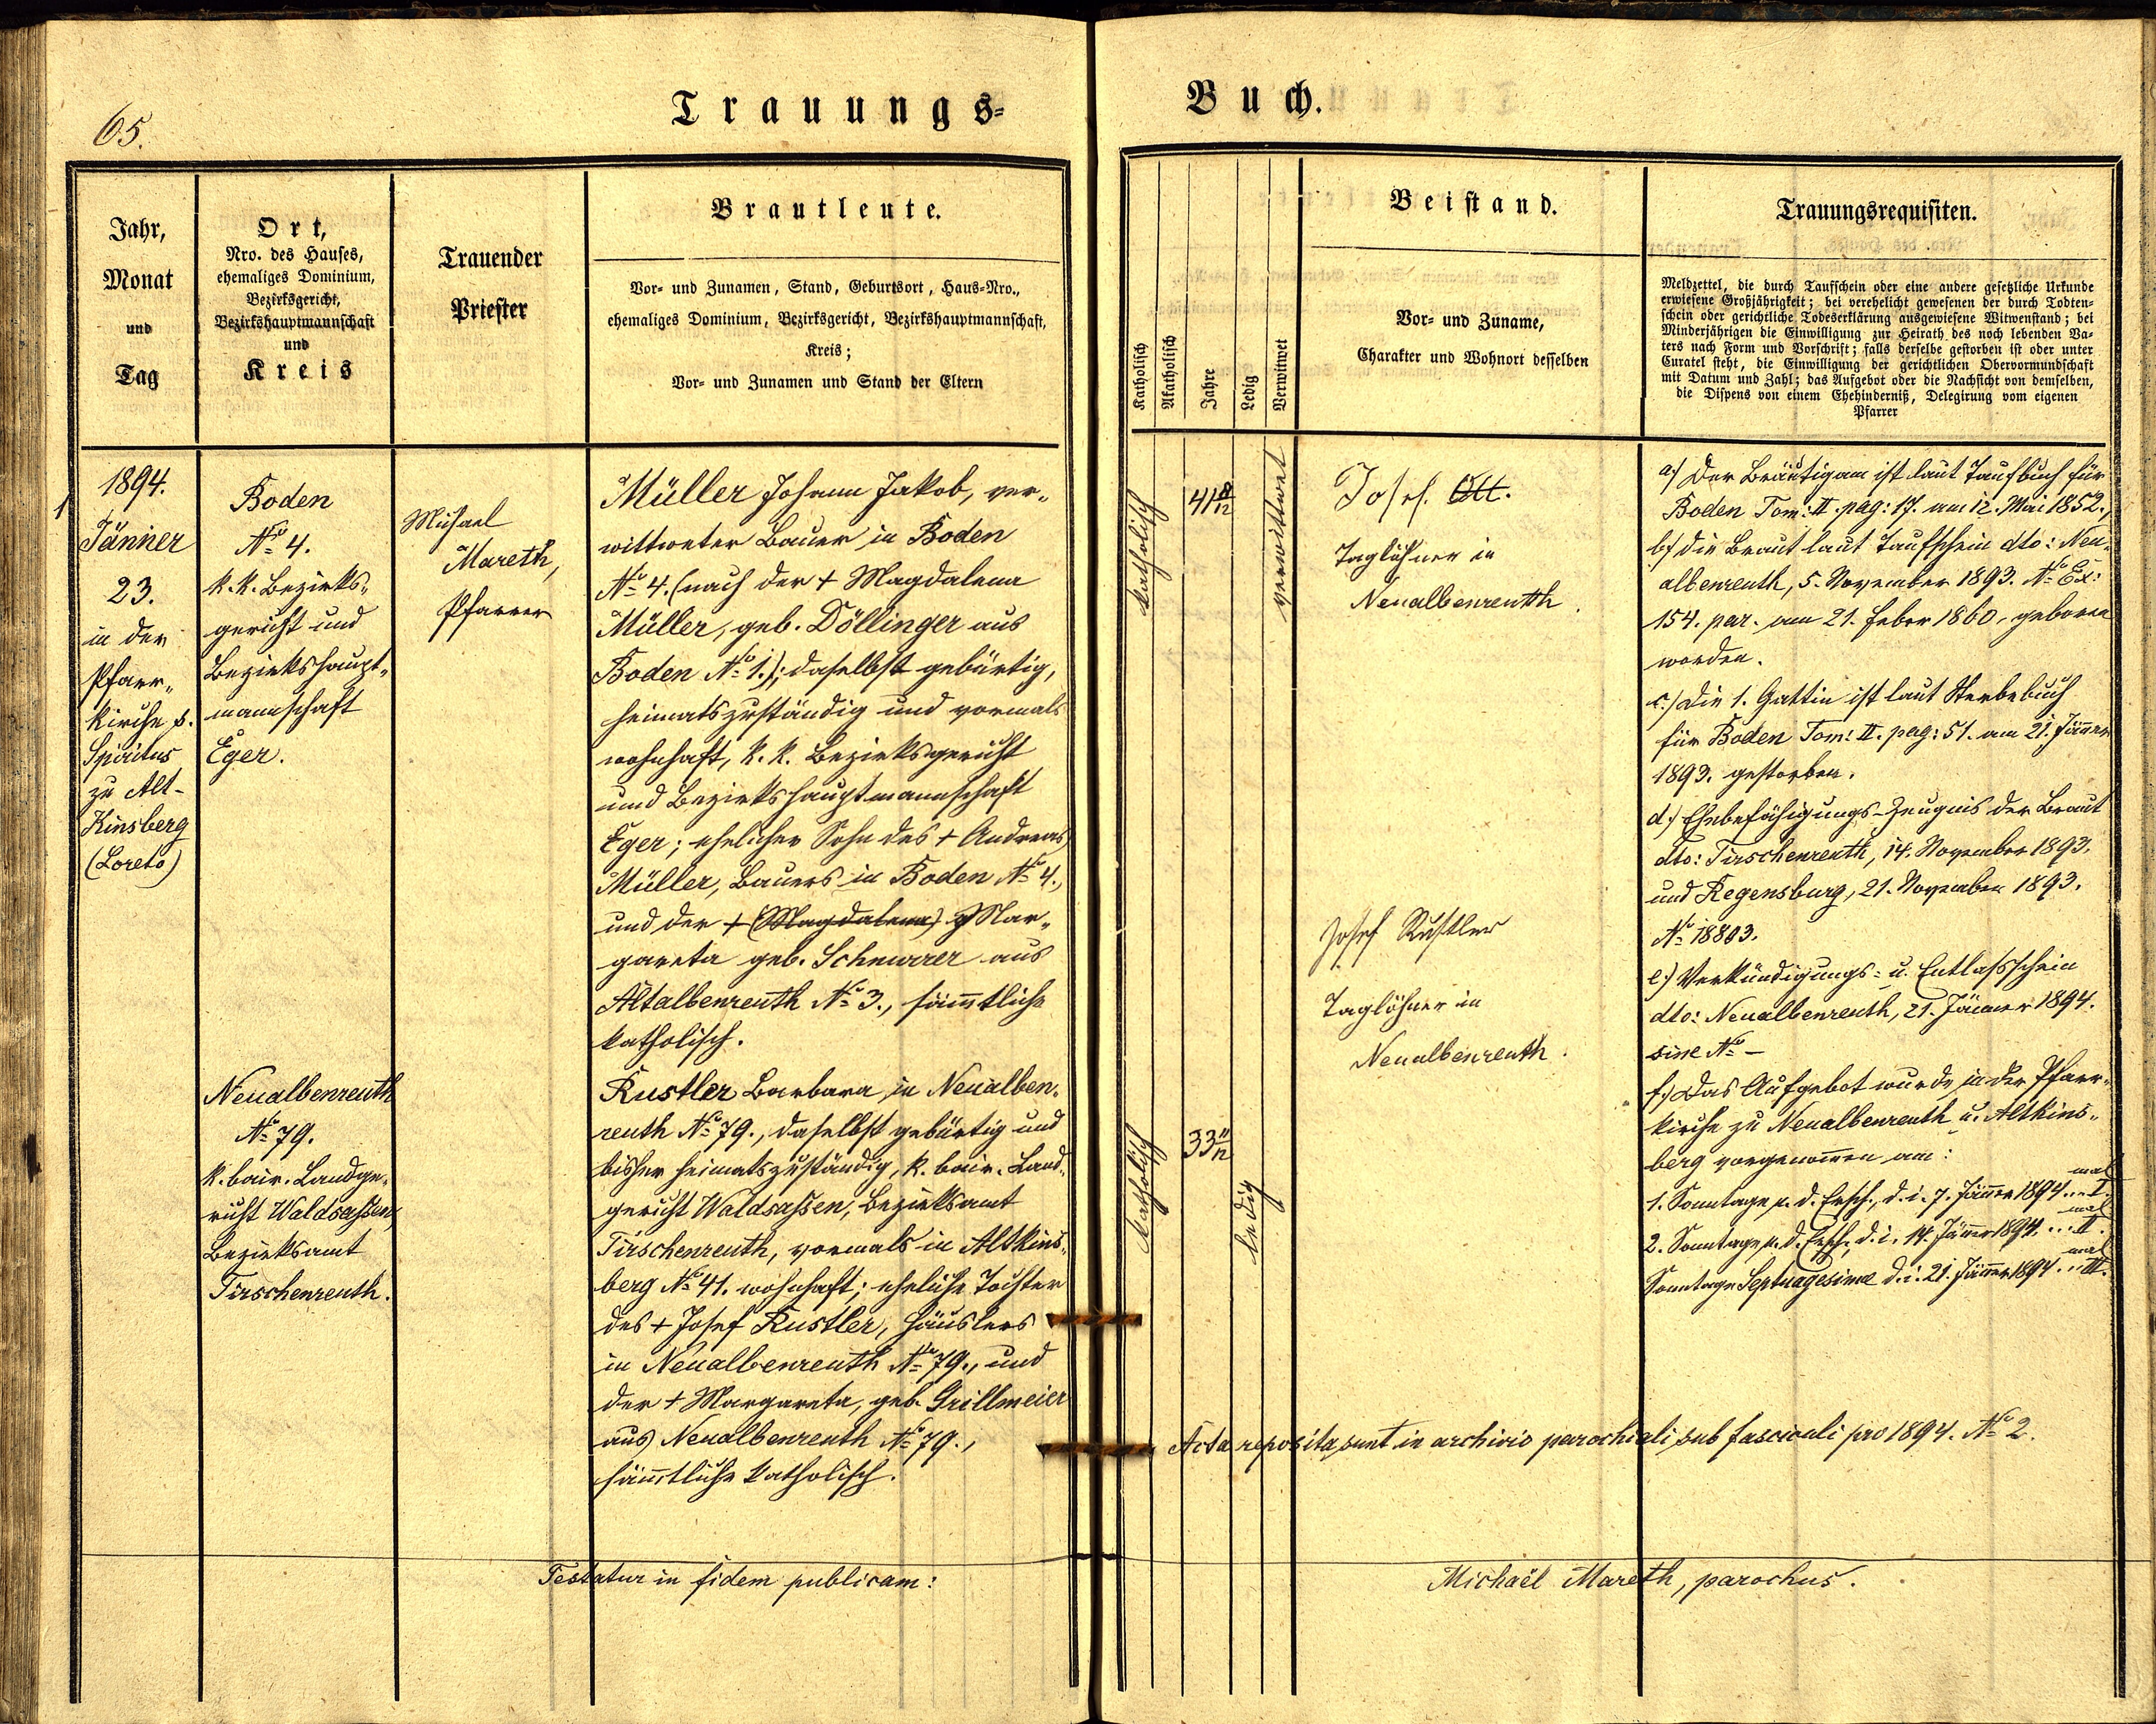 65.
Trauungs-
Buch.
Jahr,
Monat
und
Tag
Ort,
Nro. des Hauses,
ehemaliges Dominium,
Bezirksgericht,
Bezirkshauptmannschaft
und
Kreis
Trauender
Priester
Brautleute.
Vor- und Zunamen, Stand, Geburtsort, Haus-Nro.,
ehemaliges Dominium, Bezirksgericht, Bezirkshauptmannschaft,
Kreis;
Vor- und Zunamen und Stand der Eltern
Katholisch
Akatholisch
Jahre
Ledig
Verwitwet
Beistand.
Vor- und Zuname,
Charakter und Wohnort desselben
Trauungsrequisiten.
Meldzettel, die durch Taufschein oder eine andere gesetzliche Urkunde
erwiesene Großjährigkeit; bei verehelicht gewesenen der durch Todten-
schein oder gerichtliche Todeserklärung ausgewiesene Witwenstand; bei
Minderjährigen die Einwilligung zur Heirath des noch lebenden Va-
ters nach Form und Vorschrift; falls derselbe gestorben ist oder unter
Curatel steht, die Einwilligung der gerichtlichen Obervormundschaft
mit Datum und Zahl; das Aufgebot oder die Nachsicht von demselben,
die Dispens von einem Ehehinderniß, Delegirung vom eigenen
Pfarrer
1
1894.
Jänner
23.
in der
Pfarr-
kirche s.
Spiritus
zu Alt-
Kinsberg
(Loreto)
Boden
No 4.
k. k. Bezirks-
gericht und
Bezirkshaupt-
mannschaft
Eger.
Neualbenreuth
No 79.
k. bair. Landge-
richt Waldsassen,
Bezirksamt
Tirschenreuth.
Michael
Mareth,
Pfarrer
Müller Johann Jakob, ver-
wittweter Bauer in Boden
No 4. (nach der + Magdalena
Müller, geb. Döllinger aus
Boden No 1.); daselbst gebürtig,
heimatszuständig und vormals
wohnhaft, k. k. Bezirksgericht
und Bezirkshauptmannschaft
Eger; ehelicher Sohn des + Andreas
Müller, Bauers in Boden No 4.,
und der + (Magdalena) Mar-
gareta geb. Schnurrer aus
Altalbenreuth No 3., sämtliche
katholisch.
Rustler Barbara, in Neualben-
reuth No 79., daselbst gebürtig und
bisher heimatszuständig, k. bair. Land-
gericht Waldsassen, Bezirksamt
Tirschenreuth, vormals in Altkins-
berg No 41. wohnhaft; eheliche Tochter
des + Josef Rustler, Häuslers
in Neualbenreuth No 79., und
der + Margareta, geb. Grillmeier
aus Neualbenreuth No 79.,
sämtliche katholisch.
katholisch
41 8/12
verwittwet
katholisch
33 11/12
ledig
Josef Ott.
Taglöhner in
Neualbenreuth.
Josef Rustler
Taglöhner in
Neualbenreuth.
a.) Der Bräutigam ist laut Taufbuch für
Boden Tom: II. pag: 17. am 12. Mai 1852.,
b.) die Braut laut Taufschein dto: Neu-
albenreuth, 5. November 1893. No Ex:
154. par. am 21. Feber 1860, geboren
worden.
c.) Die 1. Gattin ist laut Sterbebuch
für Boden Tom: II. pag: 51. am 21. Jänner
1893. gestorben.
d.) Ehebefähigungs-Zeugnis der Braut
dto: Tirschenreuth, 14. November 1893.
und Regensburg, 21. November 1893.
No 18803.
e.) Verkündigungs- u. Entlassschein
dto: Neualbenreuth, 21. Jänner 1894.
sine No —
f.) Das Aufgebot wurde in der Pfarr-
kirche zu Neualbenreuth u. Altkins-
berg vorgenommen am:
1. Sonntage n. d. Ersch., d. i. 7. Jänner 1894...I. mal
2. Sonntage n. d. Ersch., d. i. 14. Jänner 1894...II. mal
Sonntage Septuagesima d. i. 21. Jänner 1894...III. mal
Acta reposita sunt in archivio parochiali sub fasciculi pro 1894. No 2.
Testatur in fidem publicam:
Michaël Mareth, parochus.